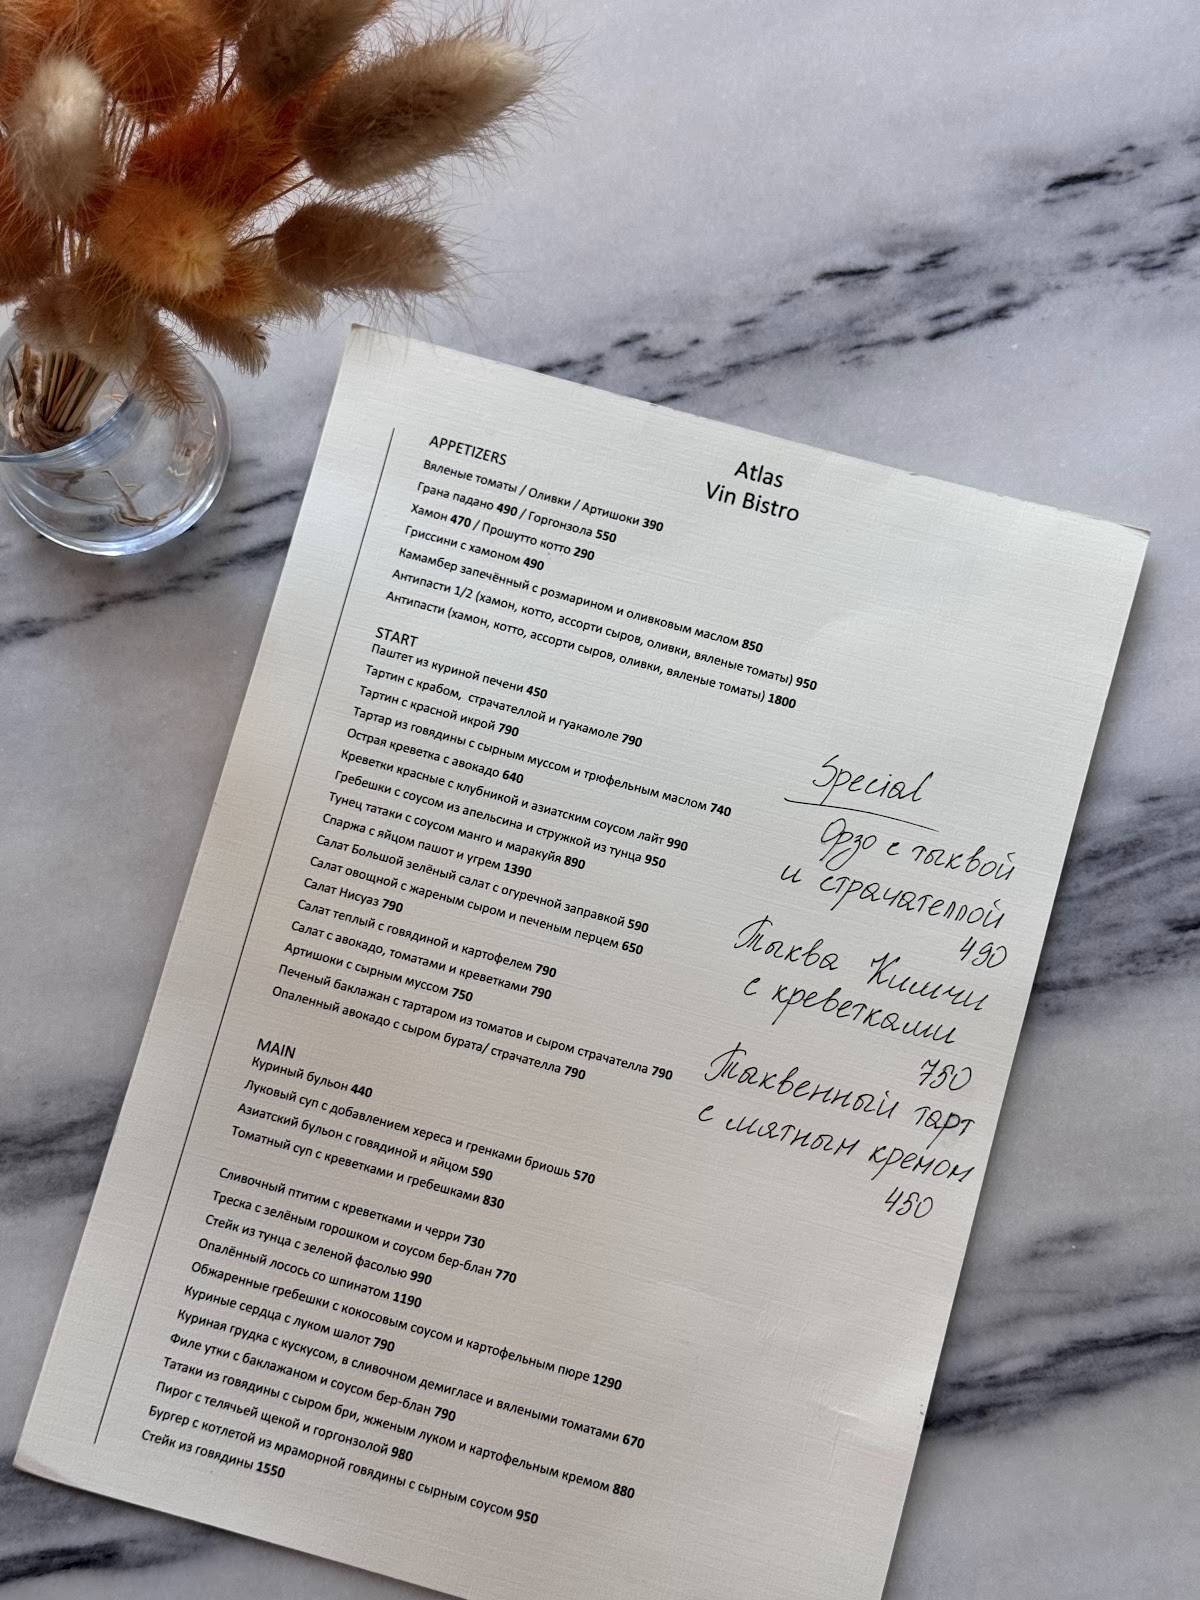 Atlas
Vin Bistro
APPETIZERS
Вяленые томаты / Оливки / Артишоки 390
Грана падано 490 / Горгонзола 550
Хамон 470 / Прошутто котто 290
Гриссини с хамоном 490
Камамбер запечённый с розмарином и оливковым маслом 850
Антипасти 1/2 (хамон, котто, ассорти сыров, оливки, вяленые томаты) 950
Антипасти (хамон, котто, ассорти сыров, оливки, вяленые томаты) 1800
START
Паштет из куриной печени 450
Тартин с крабом, страчателлой и гуакамоле 790
Тартин с красной икрой 790
Тартар из говядины с сырным муссом и трюфельным маслом 740
Острая креветка с авокадо 640
Креветки красные с клубникой и азиатским соусом лайт 990
Гребешки с соусом из апельсина и стружкой из тунца 950
Тунец татаки с соусом манго и маракуйя 890
Спаржа с яйцом пашот и угрем 1390
Салат Большой зелёный салат с огуречной заправкой 590
Салат овощной с жареным сыром и печеным перцем 650
Салат Нисуаз 790
Салат теплый с говядиной и картофелем 790
Салат с авокадо, томатами и креветками 790
Артишоки с сырным муссом 750
Печеный баклажан с тартаром из томатов и сыром страчателла 790
Опаленный авокадо с сыром бурата/ страчателла 790
MAIN
Куриный бульон 440
Луковый суп с добавлением хереса и гренками бриошь 570
Азиатский бульон с говядиной и яйцом 590
Томатный суп с креветками и гребешками 830
Сливочный птитим с креветками и черри 730
Треска с зелёным горошком и соусом бер-блан 770
Стейк из тунца с зеленой фасолью 990
Опалённый лосось со шпинатом 1190
Обжаренные гребешки с кокосовым соусом и картофельным пюре 1290
Куриные сердца с луком шалот 790
Куриная грудка с кускусом, в сливочном демигласе и вялеными томатами 670
Филе утки с баклажаном и соусом бер-блан 790
Татаки из говядины с сыром бри, жженым луком и картофельным кремом 880
Пирог с телячьей щекой и горгонзолой 980
Бургер с котлетой из мраморной говядины с сырным соусом 950
Стейк из говядины 1550
Special
Орзо с тыквой
и страчателлой
490
Тыква Кимчи
с креветками
750
Тыквенный тарт
с мятным кремом
450